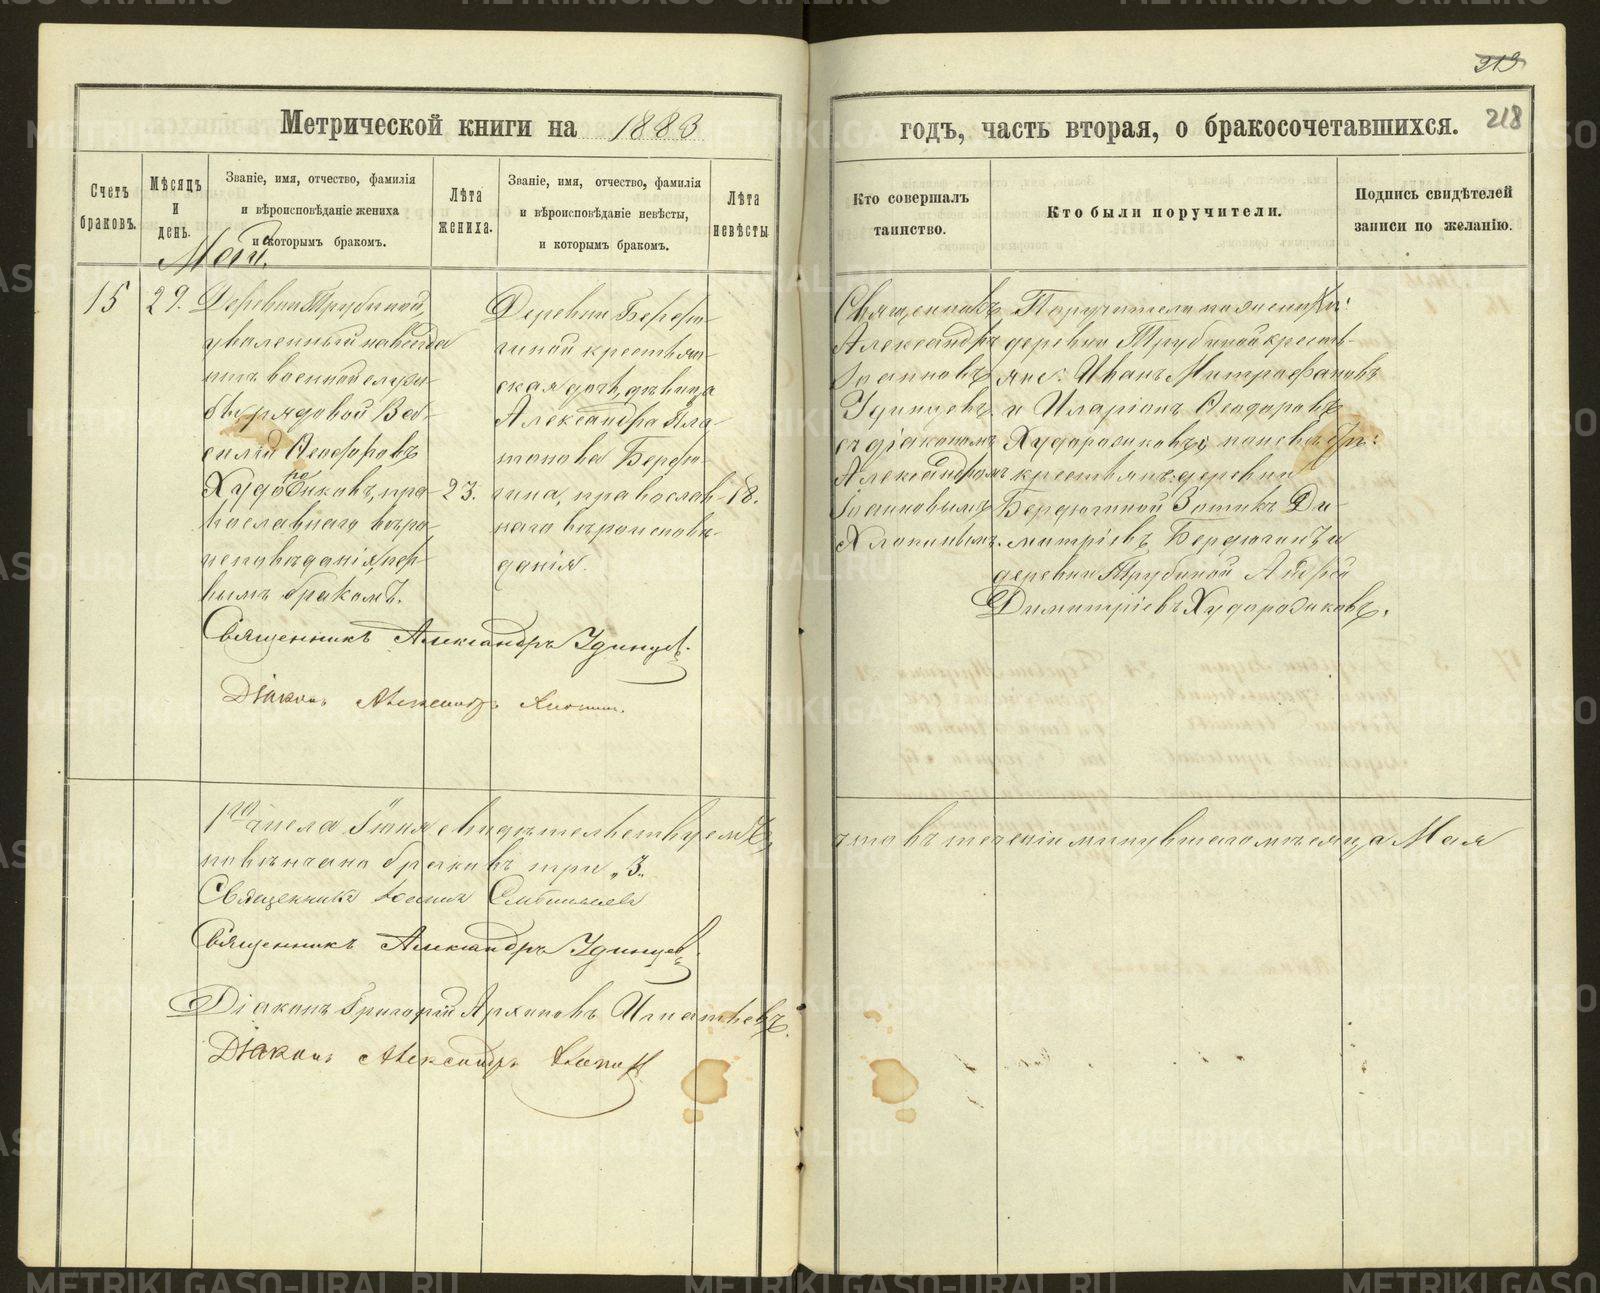 313
218
Метрической книги на 1883
годъ, часть вторая, о бракосочетавшихся.
Счетъ браковъ.
Мѣсяцъ и день.
Званіе, имя, отчество, фамилія
и вѣроисповѣданіе жениха
и которымъ бракомъ.
Лѣта жениха.
Званіе, имя, отчество, фамилія
и вѣроисповѣданіе невѣсты,
и которымъ бракомъ.
Лѣта невѣсты
Кто совершалъ
таинство.
Кто были поручители.
Подпись свидѣтелей
записи по желанію.
Май.
15
29.
Деревни Трубиной,
уволенный навсегда
отъ военной служ-
бы рядовой Ва-
силій Ѳеодоровъ
Худорожковъ, пра-
вославнаго вѣро-
исповѣданія, пер-
вымъ бракомъ.
23.
Деревни Бердю-
гиной крестьян-
ская дочь, дѣвица
Александра Пла-
тонова Бердю-
гина, православ-
наго вѣроисповѣ-
данія.
18.
Священникъ
Александръ
Іоанновъ
Удинцевъ
съ діакономъ
Александромъ
Іоанновымъ
Хлопинымъ.
Поручители по женихѣ:
деревни Трубиной кресть-
яне: Иванъ Митрофановъ
и Иларіонъ Ѳеодоровъ
Худорожковы; по невѣстѣ:
крестьян. деревни
Бердюгиной Зотикъ Ди-
митріевъ Бердюгинъ и
деревни Трубиной Андрей
Димитріевъ Худорожковъ.
Священникъ Александръ Удинцевъ.
Діаконъ Александръ Хлопин.
1го числа Іюня свидѣтельствуемъ,
что въ теченіи минувшаго мѣсяца Мая
повѣнчано браковъ три „3„
Священникъ
Священникъ Александръ Удинцевъ.
Діаконъ Григорій Архиповъ Игнатьевъ.
Діаконъ Александръ Хлопин
METRIKI.GASO-URAL.RU